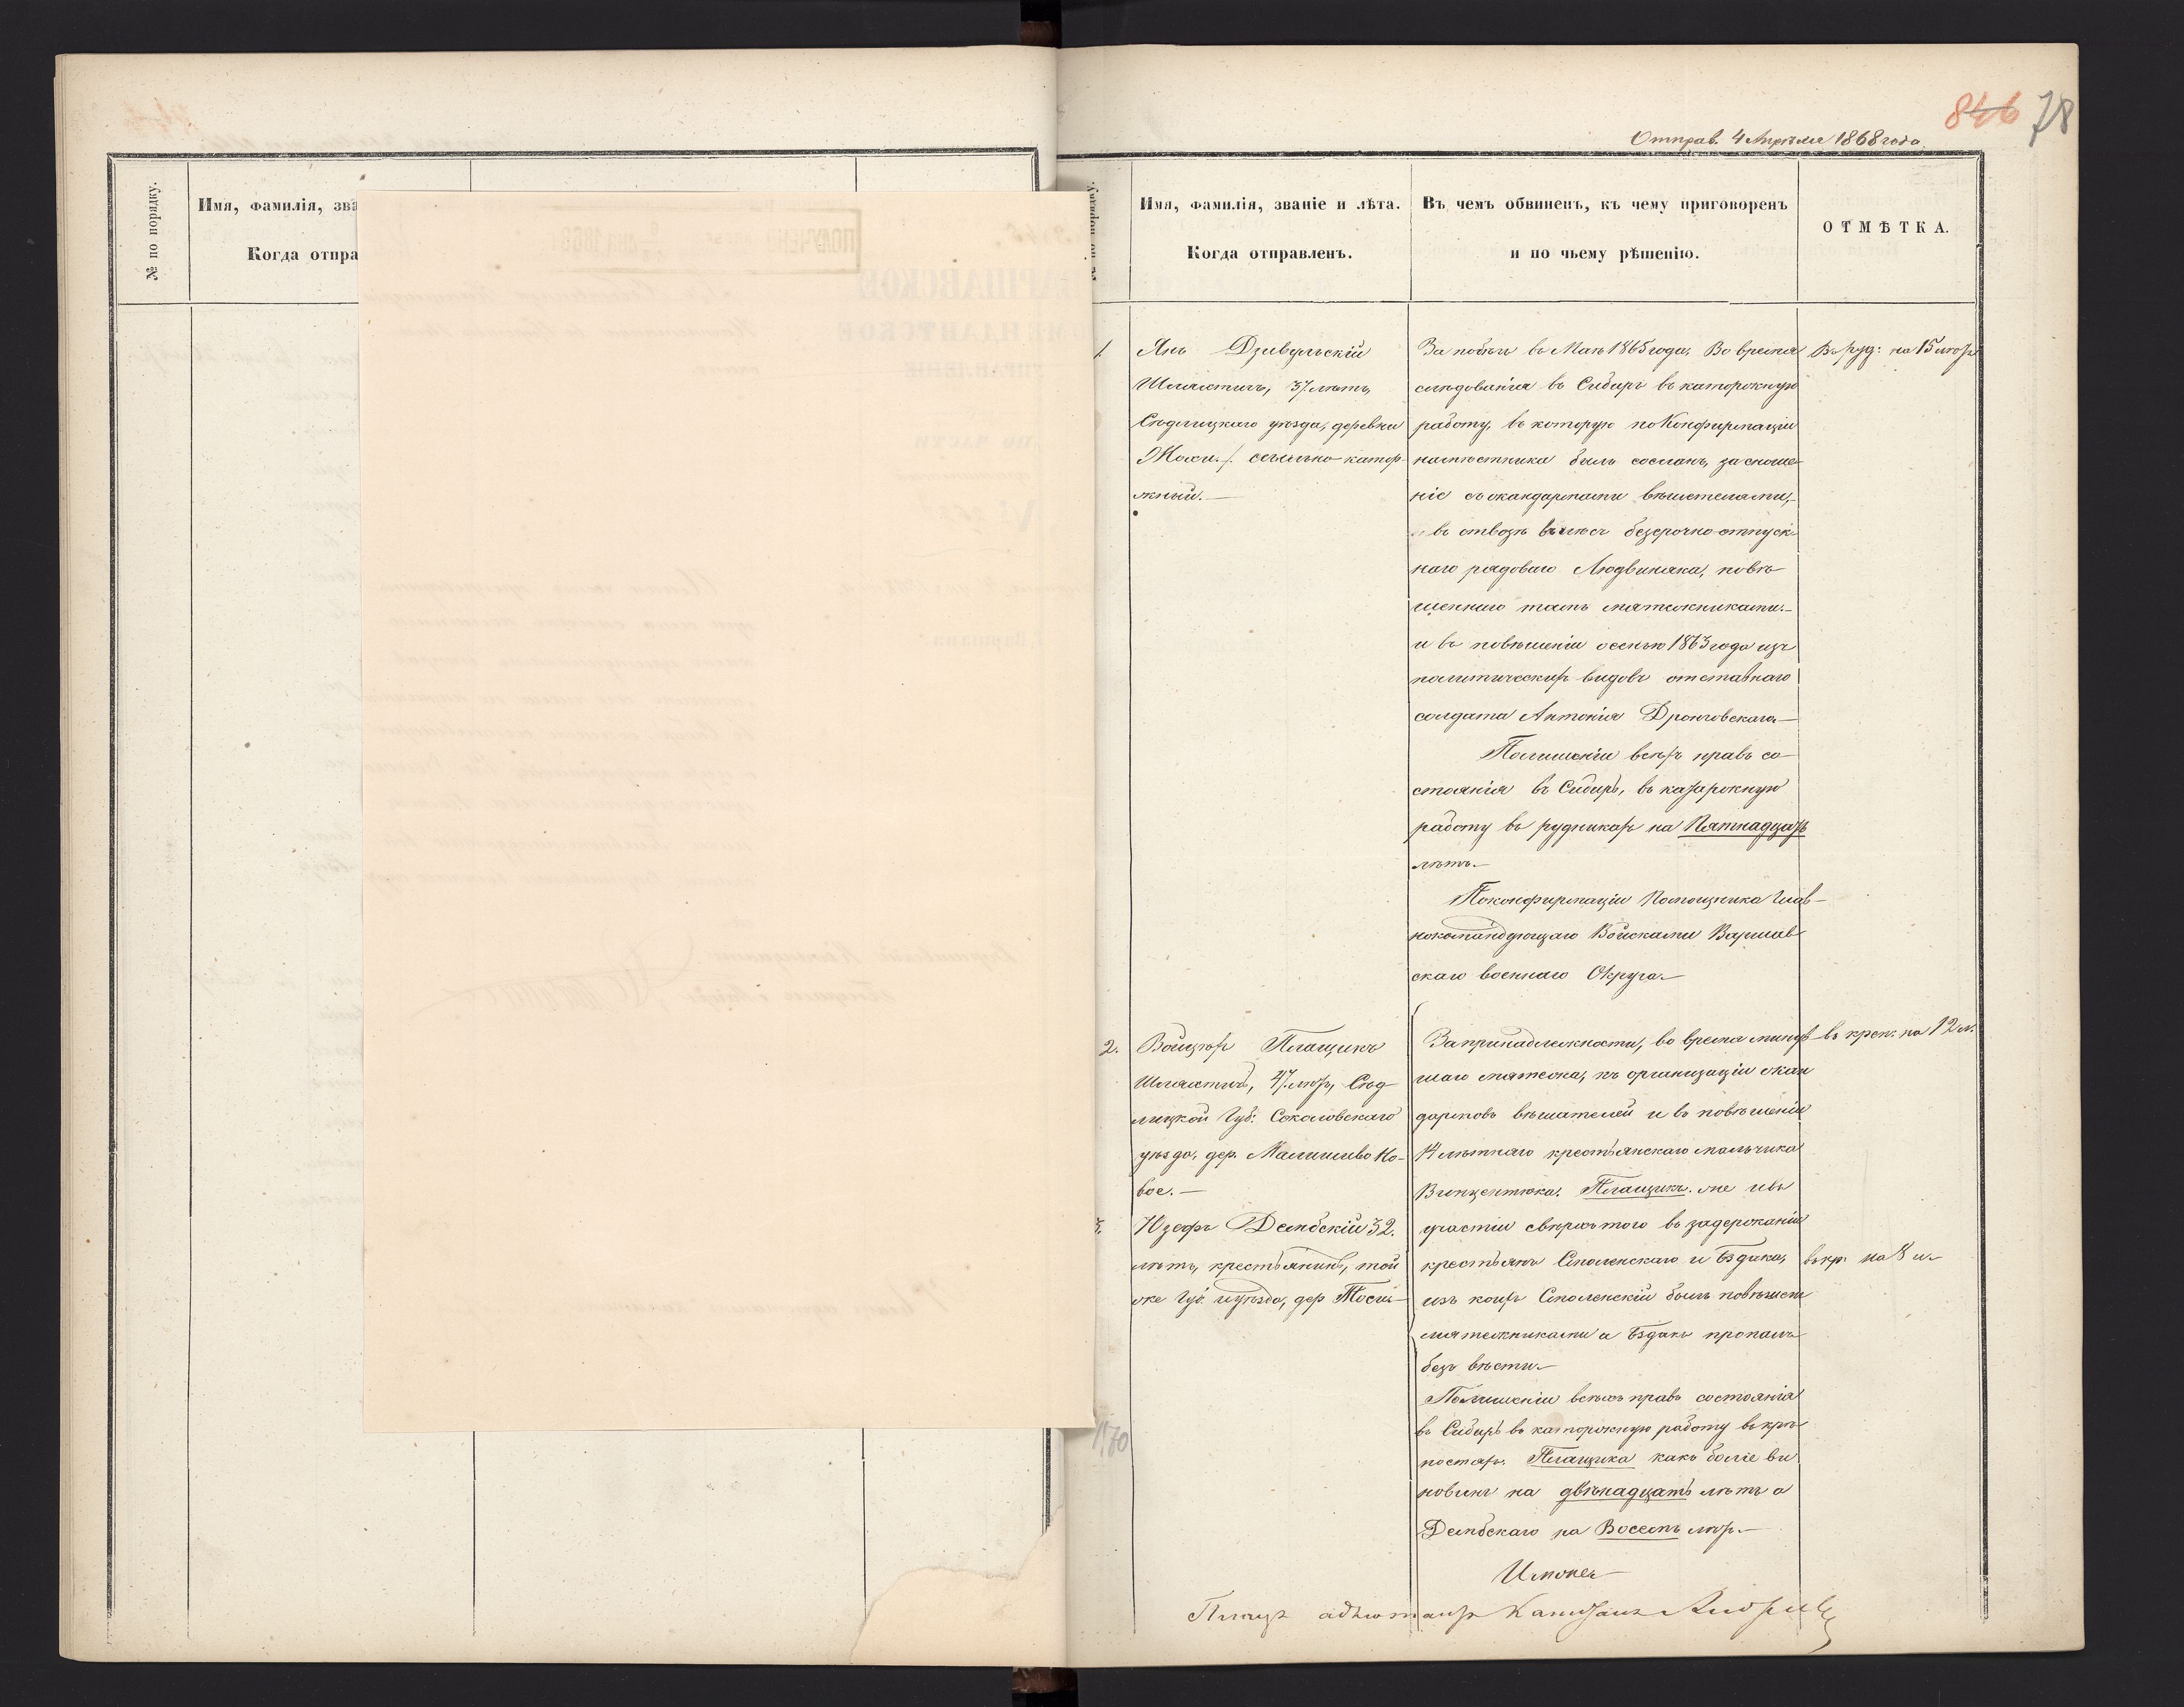 846 78
Отправ. 4 Апрѣля 1868 года
№ по порядку.
Имя, фамилія, зва
Когда отпра
Имя, фамилія, званіе и лѣта.
Когда отправленъ.
Въ чемъ обвиненъ, къ чему приговоренъ
и по чьему рѣшенію.
ОТМѢТКА.
1.
Янъ Дзивульскій
Шляхтичъ, 37 лѣтъ,
Сѣдлицкаго уѣзда, деревни
ссыльно катор-
жный.—
За побѣгъ въ Маѣ 1865 года, Во время
слѣдованія въ Сибирь въ каторжную
работу, въ которую по Конфирмаціи
намѣстника былъ сосланъ, за сноше-
ніе съ жандармами вѣшателями,
въ отвозѣ въ лѣсъ безсрочно отпуск-
наго рядоваго Людвиняка, повѣ-
шеннаго тамъ мятежниками.—
и въ повѣшеніи осенью 1863 года изъ
политическихъ видовъ отставнаго
солдата Антонія Дронговскаго—
По лишеніи всѣхъ правъ со-
стоянія въ Сибирь, въ каторжную
работу въ рудникахъ на Пятнадцать
лѣтъ.—
По конфирмаціи Помощника Глав-
нокомандующаго Войсками Варшав-
скаго военнаго Округа.—
Въ руд: на 15 лѣтъ
2.
Войцѣхъ Плащикъ
Шляхтичъ, 47 лѣтъ, Сѣд-
лицкой Губ: Соколовскаго
уѣзда, дер. Малишево Но-
вое.—
За принадлежности, во время минув-
шаго мятежа, къ организаціи жан
дармовъ вѣшателей и въ повѣшеніи
14 лѣтняго крестьянскаго мальчика
Винцентюка. Плащикъ же и въ
участіи сверхъ того въ задержаніи
крестьянъ Смоленскаго и Ездака,
изъ коихъ Смоленскій былъ повѣшенъ
мятежниками а Ездакъ пропалъ
безъ вѣсти.—
По лишеніи всѣхъ правъ состоянія
въ Сибирь въ каторжную работу въ крѣ-
постяхъ. Плащика какъ болѣе ви
новенъ на двѣнадцать лѣтъ а
Дембскаго на Восемь лѣтъ.—
въ креп. на 12 л.
3.
Юзефъ Дембскій 32.
лѣтъ, крестьянинъ, той
же Губ. и уѣзда, дер
въ кр. на 8 л.
1170
Плацъ адъютантъ Капитанъ